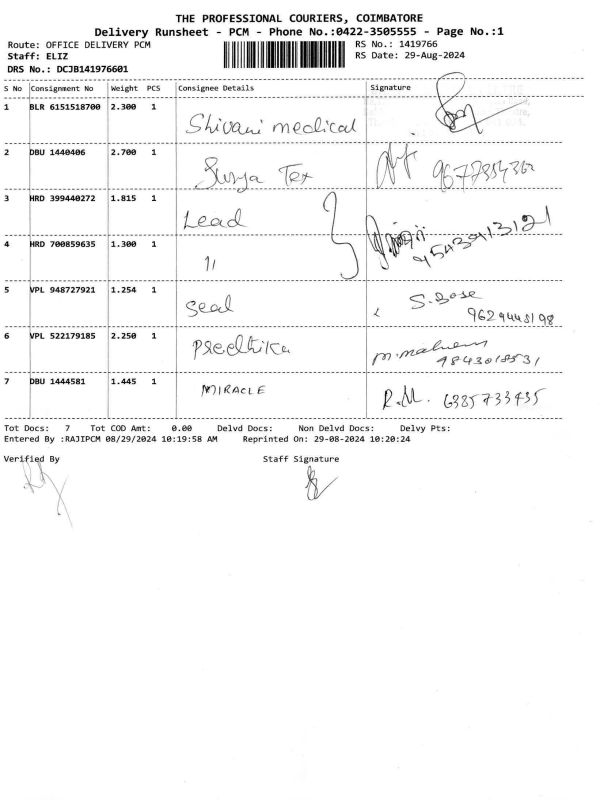 THE PROFESSIONAL COURIERS, COIMBATORE
Delivery Runsheet - PCM - Phone No.:0422-3505555 - Page No.:1
Route: OFFICE DELIVERY PCM RS No.: 1419766
Staff: ELIZ RS Date: 29-Aug-2024
DRS No.: DCJB141976601
S No Consignment No Weight PCS Consignee Details Signature
1 BLR 6151518700 2.300 1 Shivani medical
2 DBU 1440406 2.700 1 Surya Tex
3 HRD 399440272 1.815 1 Lead
4 HRD 700859635 1.300 1 11
5 VPL 948727921 1.254 1 Seal S. Bose
9629448198
6 VPL 522179185 2.250 1 Preethika
9843018531
7 DBU 1444581 1.445 1 MIRACLE R.M. 6385733435
Tot Docs: 7 Tot COD Amt: 0.00 Delvd Docs: Non Delvd Docs: Delvy Pts:
Entered By :RAJIPCM 08/29/2024 10:19:58 AM Reprinted On: 29-08-2024 10:20:24
Verified By Staff Signature